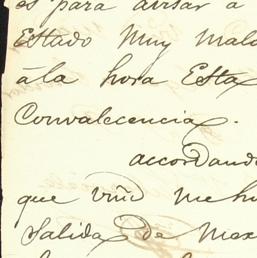 es para avisar a
Estado Muy Malo
á la hora Esta
Convalecencia.
accordando
que viñe me ha
Salida de Mex